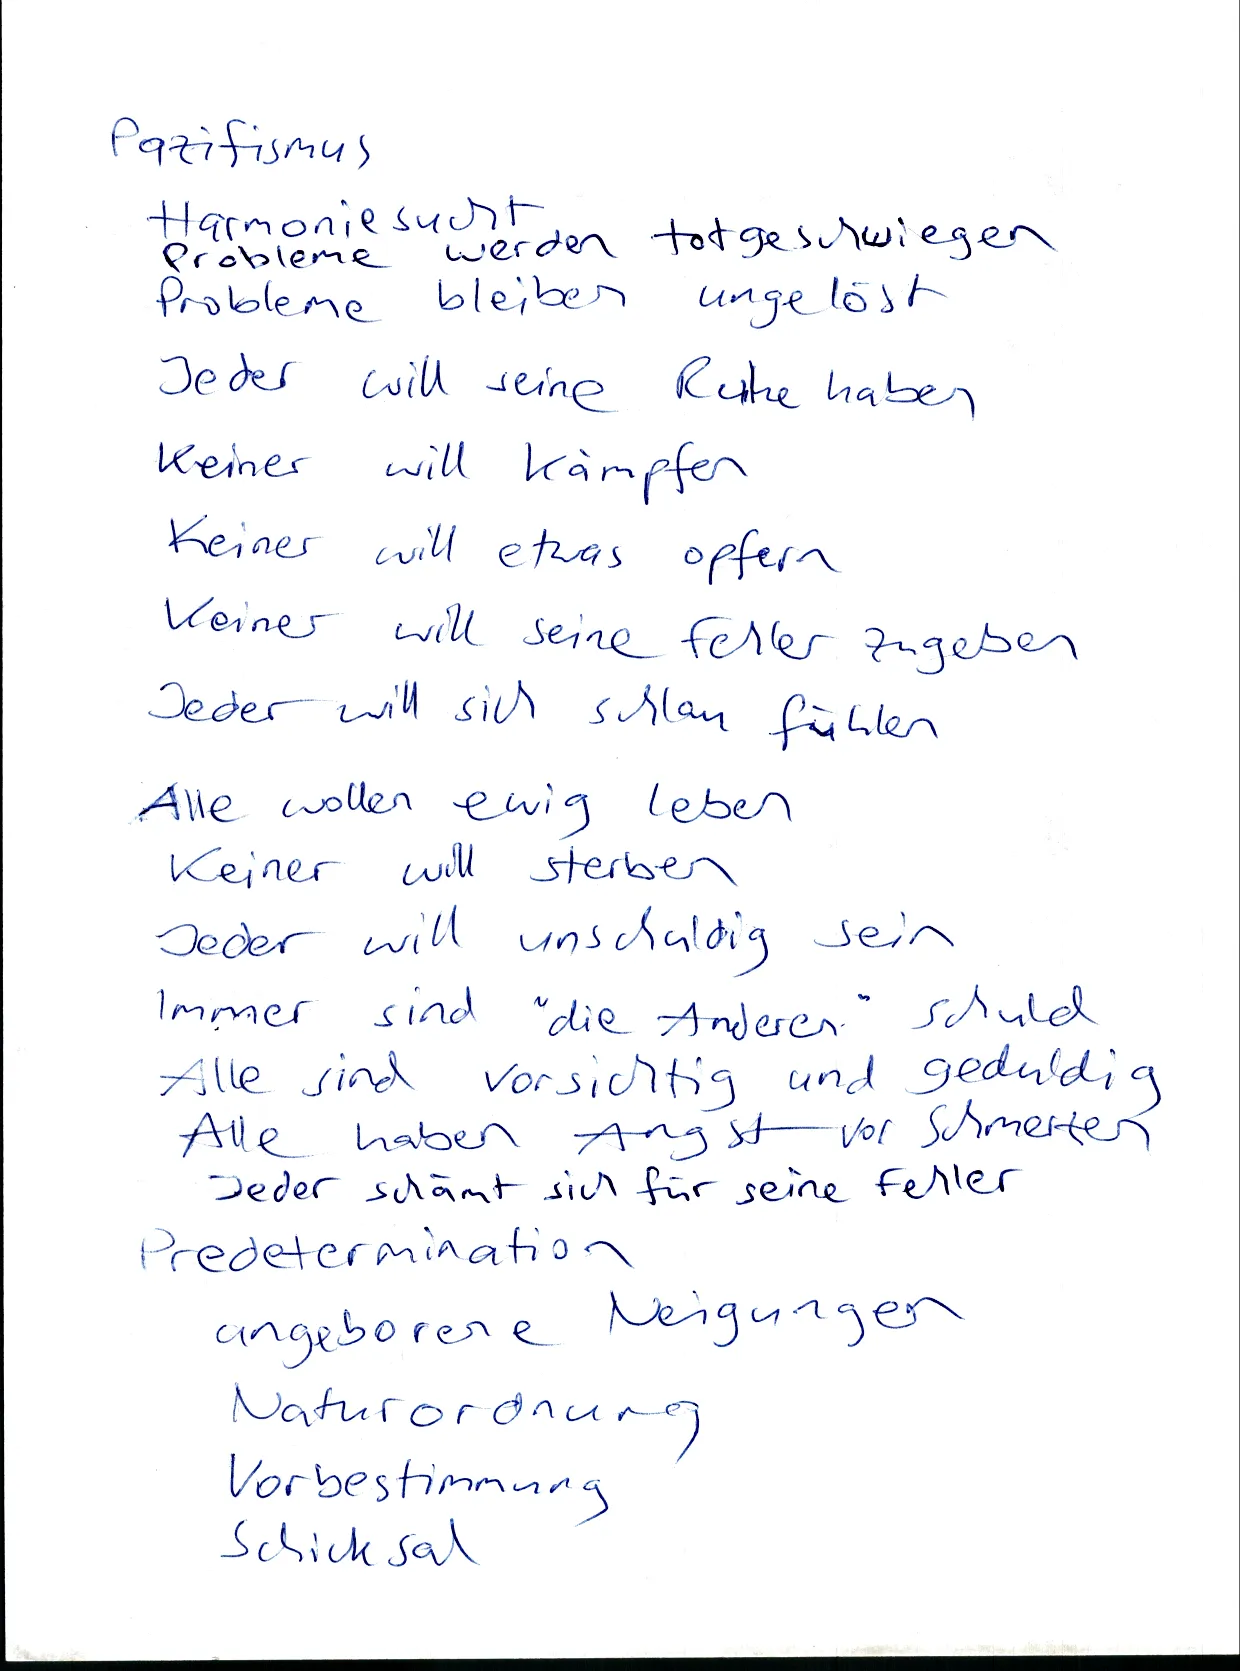 Pazifismus
Harmoniesucht
Probleme werden totgeschwiegen
Probleme bleiben ungelöst
Jeder will seine Ruhe haben
Keiner will kämpfen
Keiner will etwas opfern
Keiner will seine Fehler zugeben
Jeder will sich schlau fühlen
Alle wollen ewig leben
Keiner will sterben
Jeder will unschuldig sein
Immer sind "die Anderen" schuld
Alle sind vorsichtig und geduldig
Alle haben Angst vor Schmerzen
Jeder schämt sich für seine Fehler
Predetermination
angeborene Neigungen
Naturordnung
Vorbestimmung
Schicksal